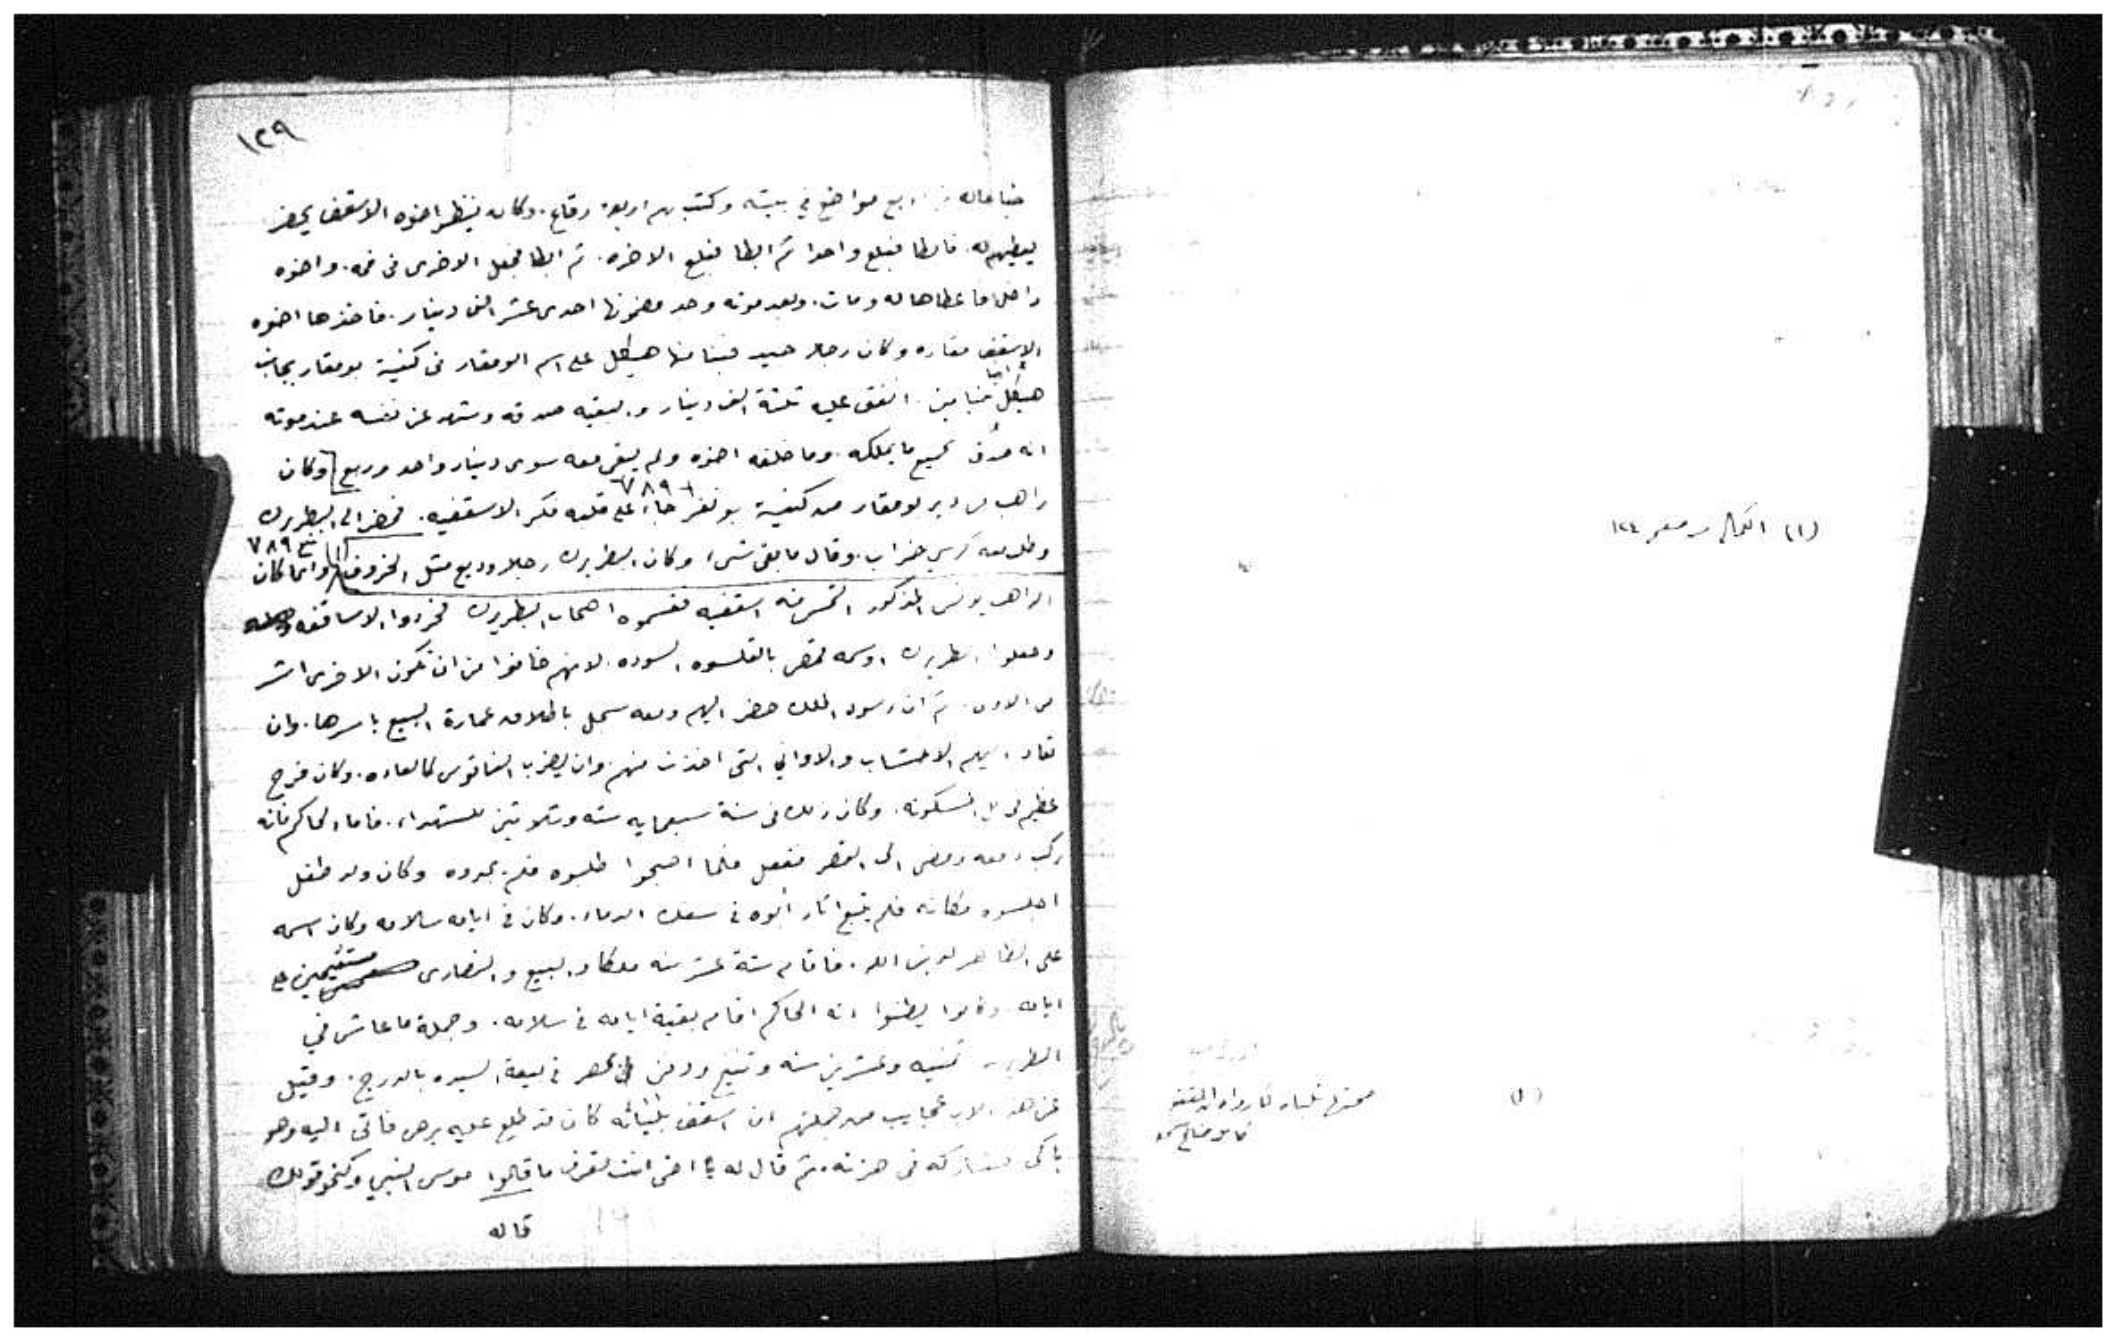 ١٢٩
خبا ماله في اربع مواضع في بيته وكتب بهم اربعة رقاع. وكان ينتظر اخوه الاسقف يحضر
ليعطيهم له. فابطا فبلع واحدا ثم ابطا فبلع الاخره. ثم ابطا فجعل الاخرى في فمه. واخوه
داخل فاعطاها له ومات. وبعد موته وجد مضمونها احدى عشر الف دينار. فاخذها اخوه
الاسقف مقاره وكان رجلا جيد فبنا منها هيكل على اسم ابو مقار في كنيسة بو مقار بجانب
هيكل انبا بنيامين. انفق عليه ثلثة الف دينار والبقيه صدقه وشهد عن نفسه عند موته
انه صدق بجميع ما يملكه. وما خلفه اخوه ولم يبقى معه سوى دينار واحد وربع [وكان
راهب من دير بو مقار من كنيسة بو نفر جاء على قلبه فكر الاسقفيه. فحضر الى البطريرك
٧٨٩
وطلب منه كرسي خراب. وقال ما بقى شيء وكان البطريرك رجلا وديع مثل الخروف] (١) وانما كان
٧٨٩
الراهب يونس المذكور التمس منه اسقفيه فقسموه اصحاب البطريرك فحردوا الاساقفه
وجعلوا البطريرك اوسمه قمص بالقلسوه السوده. لانهم خافوا من ان تكون الاخرى اشر
من الاولى. ثم ان رسول الملك حضر اليهم ومعه سجل باطلاق عمارة البيع باسرها. وان
تعاد اليهم الاخشاب والاواني التي اخذت منهم. وان يضرب الناقوس كالعاده. وكان فرح
عظيم في كل المسكونه. وكان ذلك في سنة سبعمايه سته وثلاثين للشهداء. فاما الحاكم فانه
ركب ومضى الى القصر فلما اصبحوا طلبوه فلم يجدوه وكان ولد طفل
اجلسوه مكانه فلم يتبع اثار ابوه في سفك الدماء. وكان في ايامه سلامه وكان اسمه
على الظاهر لدين الله. فاقام ستة عشر سنه ملكا والبيع والنصارى مستقيمين في
ايامه وكانوا يظنوا انه الحاكم اقام بقية ايامه في سلامه. وجملة ما عاش في
البطريركية ثمنيه وعشرين سنه وتنيح ودفن في مصر في بيعة السيده بالدرج. وقيل
عن هذا الاب عجايب من جملتهم ان اسقف كان قد طلع عليه برص فاتى اليه وهو
باكى فشاركه في حزنه. ثم قال له يا اخي انت تعرف ما قالوا موسى النبي وكنحو قولك
قاله
(١) صفحه ١٢٤
(١)